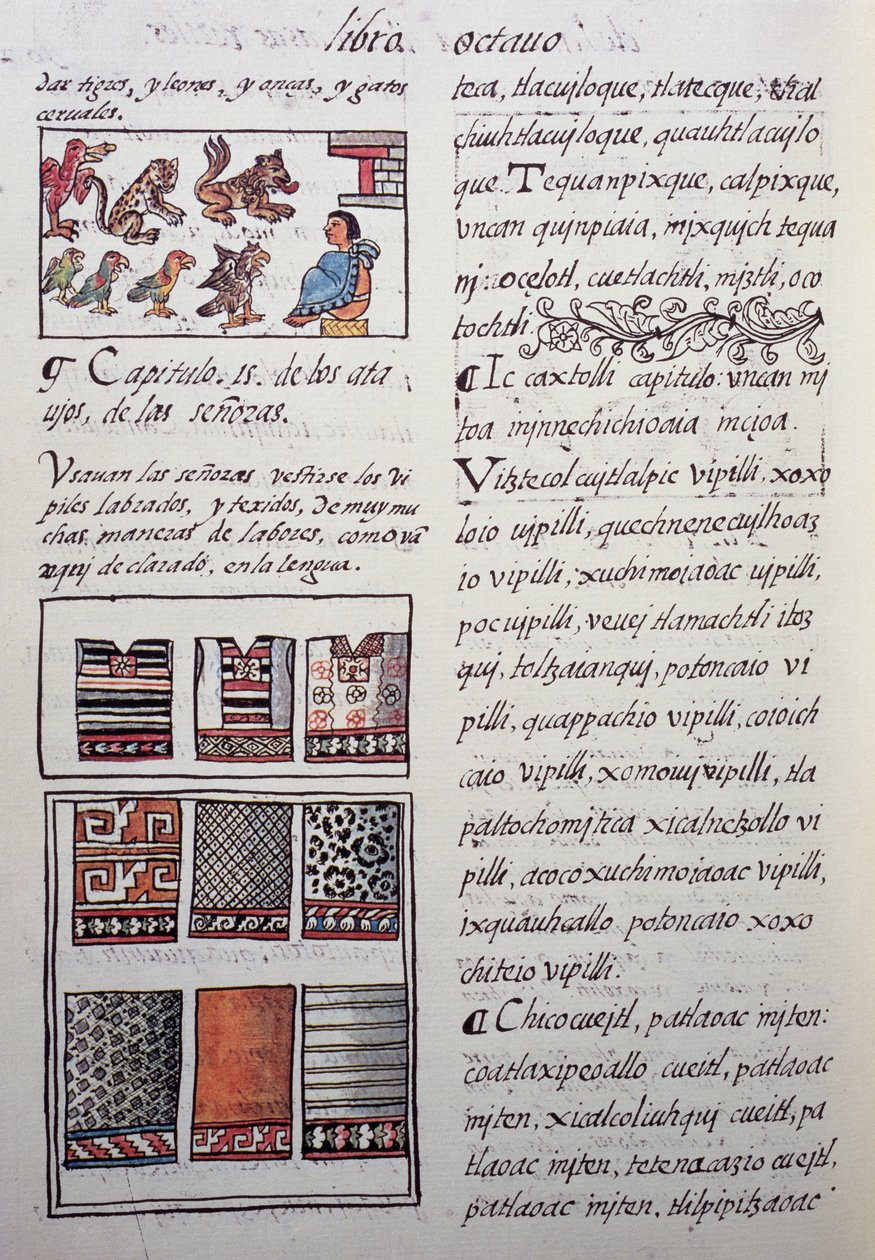 libro octauo
dar tigres, y leones, y onças, y gatos
ceruales.
¶ Capitulo. 15. de los ata
uios, de las señoras.
Vsauan las señoras vestirse los vi
piles labrados, y texidos, de muy mu
chas maneras de labores, como va
aqui declarado, en la lengua.
teca, tlacujloque, tlatecque, chal
chiuhtlacujloque, quauhtlacujlo
que. Tequanpixque, calpixque,
vncan qujnpiaia, mjxqujch tequa
nj: ocelotl, cuetlachtli, mjztli, oco
tochtli.
¶ Ic caxtolli capitulo: vncan mj
toa injnnechichioaia in cioa.
Vitztecol cujtlalpic vipilli, xoxo
loio vipilli, quechnenecujlhoaz
io vipilli, xuchimoiaoac vipilli,
poc vipilli, veuej tlamachtli itoz
quj, toltzaianquj, potoncaio vi
pilli, quappachio vipilli, coioich
caio vipilli, xomoujvipilli, tla
paltochomjtica xicalnetzollo vi
pilli, acocoxuchimoiaoac vipilli,
ixquauhcallo potoncaio xoxo
chiteio vipilli.
¶ Chicocuejtl, patlaoac injten:
coatlaxipeoallo cueitl, patlaoac
injten, xicalcoliuhquj cueitl, pa
tlaoac injten, tetenacazio cuejtl,
patlaoac injten, tlilpipitzaoac